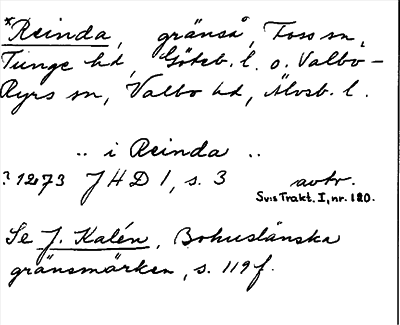 *Reinda, gränså, Foss sn,
Tunge hd, Göteb. l. o. Valbo-
Ryrs sn, Valbo hd, Älvsb. l.
.. i Reinda ..
? 1273 JHD 1, s. 3 avtr.
Sv:s Trakt. I, nr. 120.
Se J. Kalén, Bohuslänska
gränsmärken, s. 119 f.